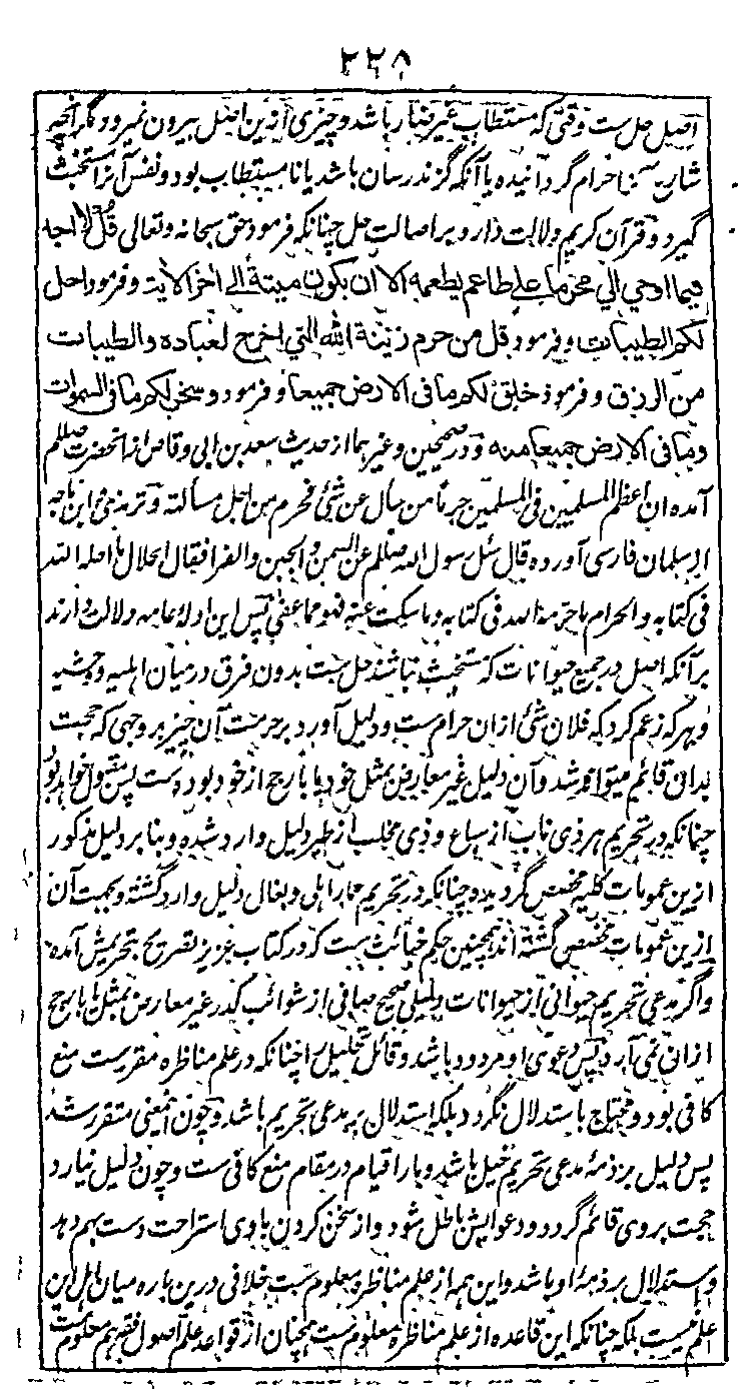 ۲۲۸
اصیل حل ست وقتی که مستطاب غیر ضار باشد و چیزی ازین اصل بیرون نمیرود مگر آنچه
شارع آنرا حرام گردانیده یا آنکه گزند رسان باشد یا نا مستطاب بود و نفس آنرا مستخبث
گیرد و قرآن کریم دلالت دارد بر اصالت حل چنانکه فرمود حق سبحانه و تعالی قل لا اجد
فیما اوحی الی محرما علی طاعم یطعمه الا ان یکون میتة الی اخر الایة و فرمود احل
لکم الطیبات و فرمود قل من حرم زینة الله التی اخرج لعباده والطیبات
من الرزق و فرمود خلق لکم ما فی الارض جمیعا و فرمود و سخر لکم ما فی السموات
وما فی الارض جمیعا منه و در صحیحین و غیرهما از حدیث سعد بن ابی وقاص از آنحضرت صللم
آمده ان اعظم المسلمین فی المسلمین جرما من سأل عن شیٔ فحرم من اجل مسألته و ترمذی و ابن ماجه
از سلمان فارسی آورده قال سئل رسول الله صللم عن السمن والجبن والفرا فقال الحلال ما احله الله
فی کتابه والحرام ما حرمه الله فی کتابه وما سکت عنه فهو مما عفی پس این ادلهٔ عامه دلالت دارند
بر آنکه اصل در جمیع حیوانات که مستخبث نباشند حل ست بدون فرق در میان اهلیه و وحشیه
و هر که زعم کرد که فلان شیٔ ازان حرام ست و دلیل آورد بر حرمت آن چیز بر وجهی که حجت
بدان قائم میتواند شد و آن دلیل غیر معارض بمثل خود یا بارجح از خود بوده ست پس مقبول خواهد بود
چنانکه در تحریم هر ذی ناب از سباع و ذی مخلب از طیر دلیل وارد شده و بنا بر دلیل مذکور
ازین عمومات کلیه مخصص گردیده و چنانکه در تحریم حمر اهلی و بغال دلیل وارد گشته و بجهت آن
ازین عمومات مخصص گشته اند همچنین حکم خبائث ست که در کتاب عزیز تصریح بتحریمش آمده
و اگر مدعی تحریم حیوانی از حیوانات دلیلی صحیح صافی از شوائب کدر غیر معارض بمثل یا بارجح
ازان نمی آرد پس دعوی او مردود باشد و قائل تحلیل را چنانکه در علم مناظره مقررست منع
کافی بود و محتاج باستدلال نگردد بلکه استدلال بر مدعی تحریم باشد و چون اینمعنی متقرر شد
پس دلیل بر ذمهٔ مدعی تحریم خیل باشد و ما را قیام در مقام منع کافی ست و چون دلیل نیارد
حجت بروی قائم گردد و دعوایش باطل شود و از سخن کردن با وی استراحت دست بهم دهد
و استدلال بر ذمهٔ او باشد و این همه از علم مناظره معلوم ست خلافی درین باره میان اهل این
علم نیست بلکه چنانکه این قاعده از علم مناظره معلوم ست همچنان از قواعد علم اصول فقه هم معلوم ست